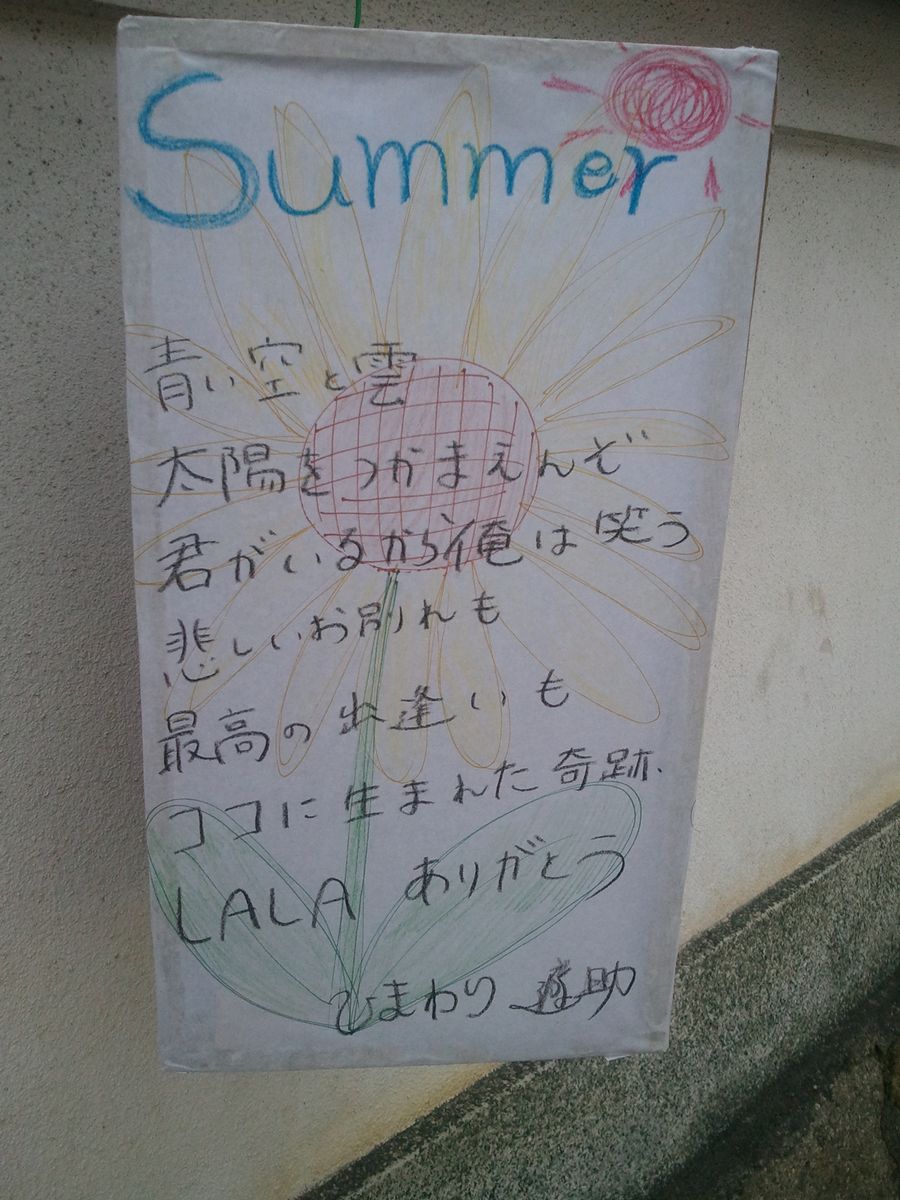 Summer
青い空と雲
太陽をつかまえんぞ
君がいるから俺は笑う
悲しいお別れも
最高の出逢いも
ココに生まれた奇跡
LALA ありがとう
ひまわり 遊助